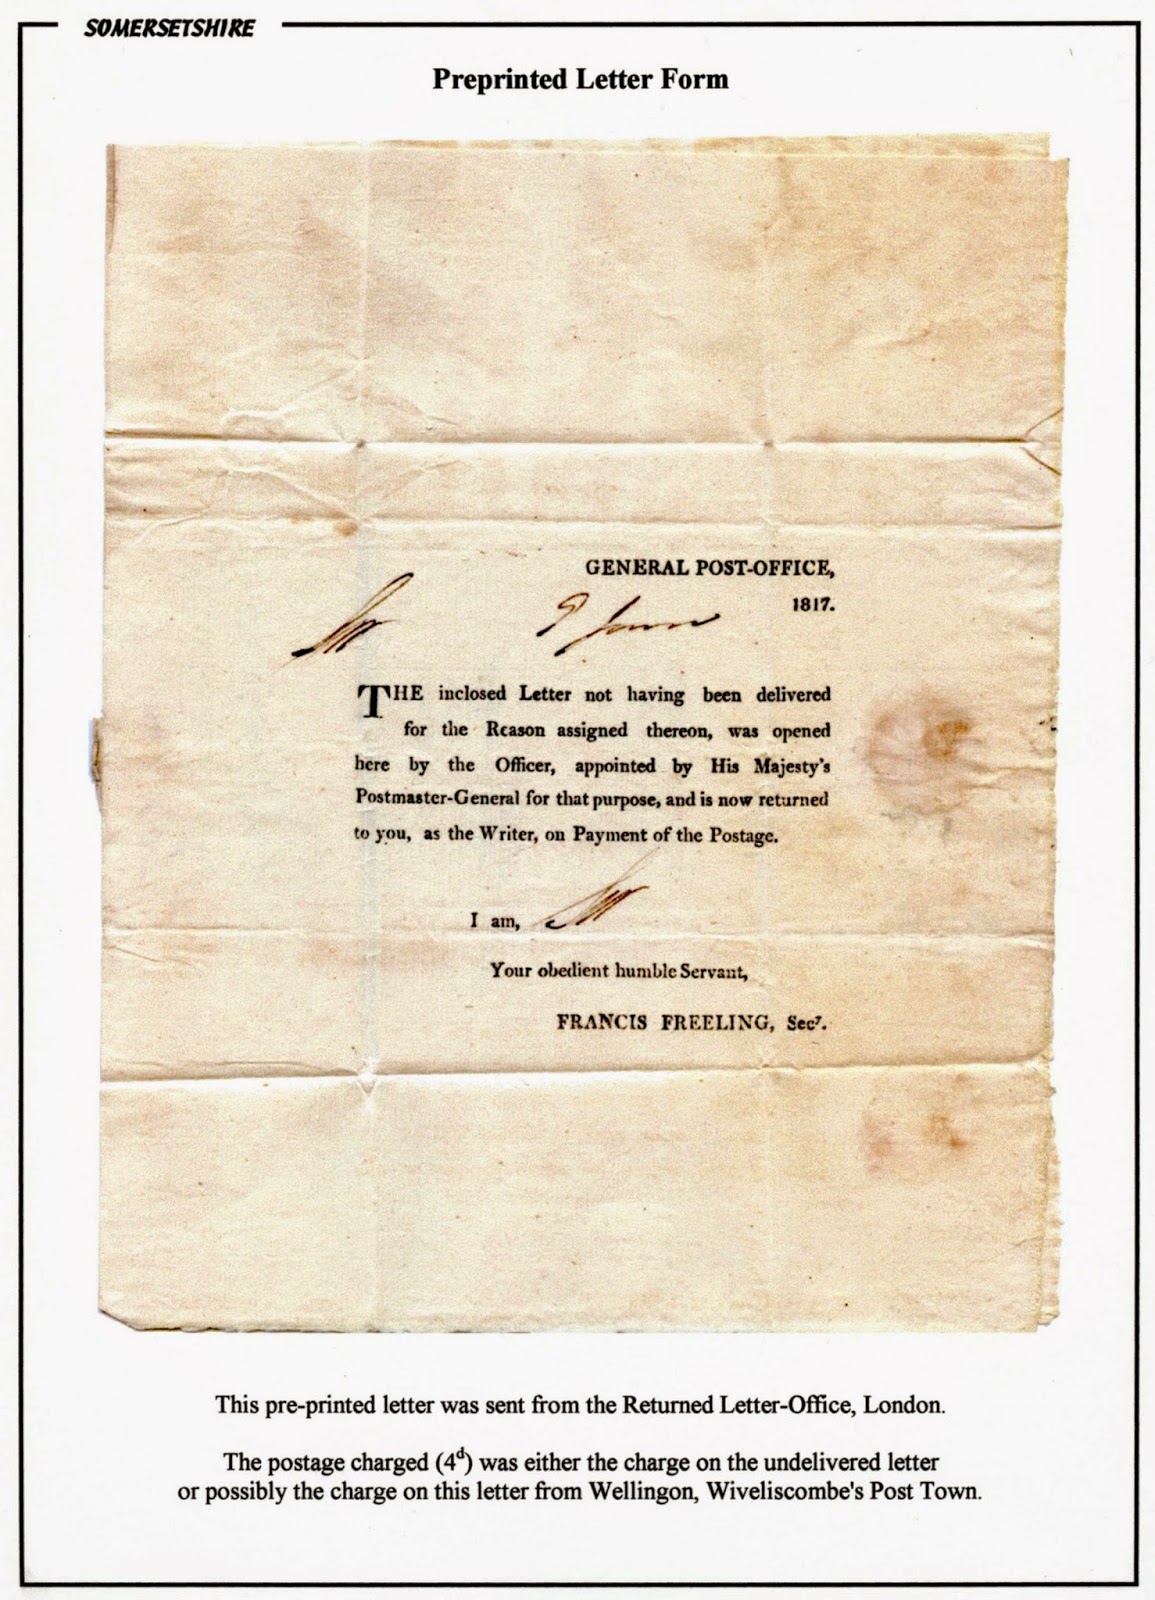 SOMERSETSHIRE
Preprinted Letter Form
GENERAL POST-OFFICE,
1817.
Sir
9 June
THE inclosed Letter not having been delivered
for the Reason assigned thereon, was opened
here by the Officer, appointed by His Majesty's
Postmaster-General for that purpose, and is now returned
to you, as the Writer, on Payment of the Postage.
I am, Sir
Your obedient humble Servant,
FRANCIS FREELING, Secʸ.
This pre-printed letter was sent from the Returned Letter-Office, London.
The postage charged (4ᵈ) was either the charge on the undelivered letter
or possibly the charge on this letter from Wellingon, Wiveliscombe's Post Town.